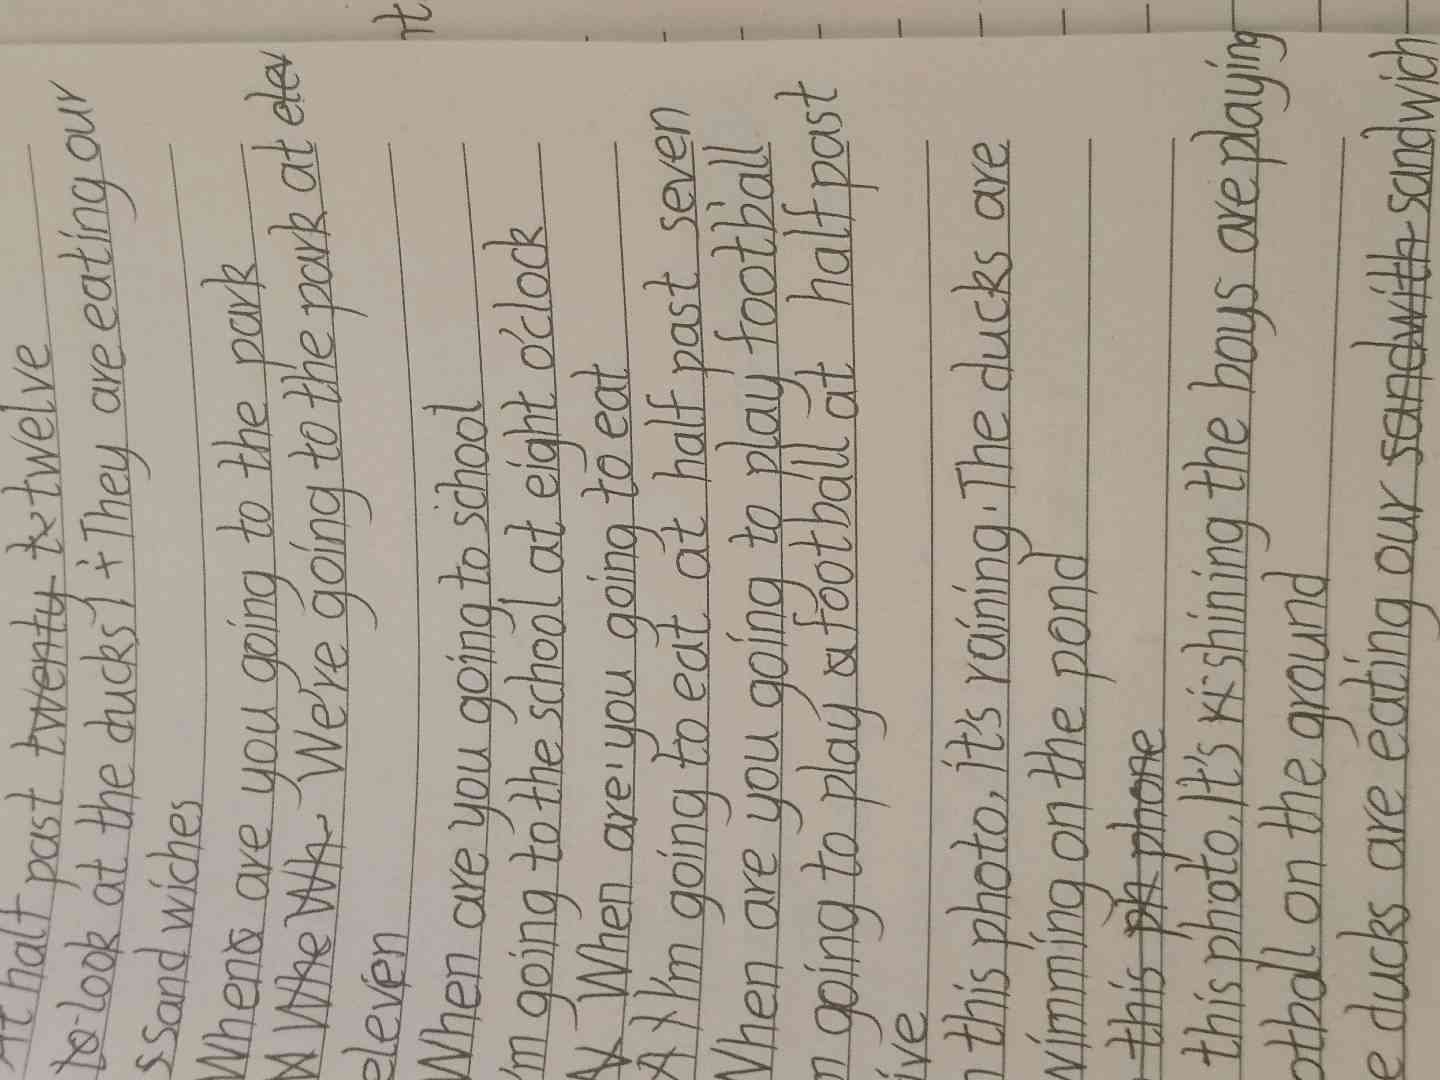 At half past twenty tw twelve
to look at the ducks! + They are eating our
ssand wiches
When are you going to the park
A Whe Wh We're going to the park at elev
eleven
When are you going to school
'm going to the school at eight o'clock
When are you going to eat
A I I'm going to eat at half past seven
When are you going to play football
m going to play a football at half past
ive
n this photo, it's raining. The ducks are
wimming on the pond
this ph phone
this photo, It's shining the boys are playing
otball on the ground
e ducks are eating our sandwith sandwich